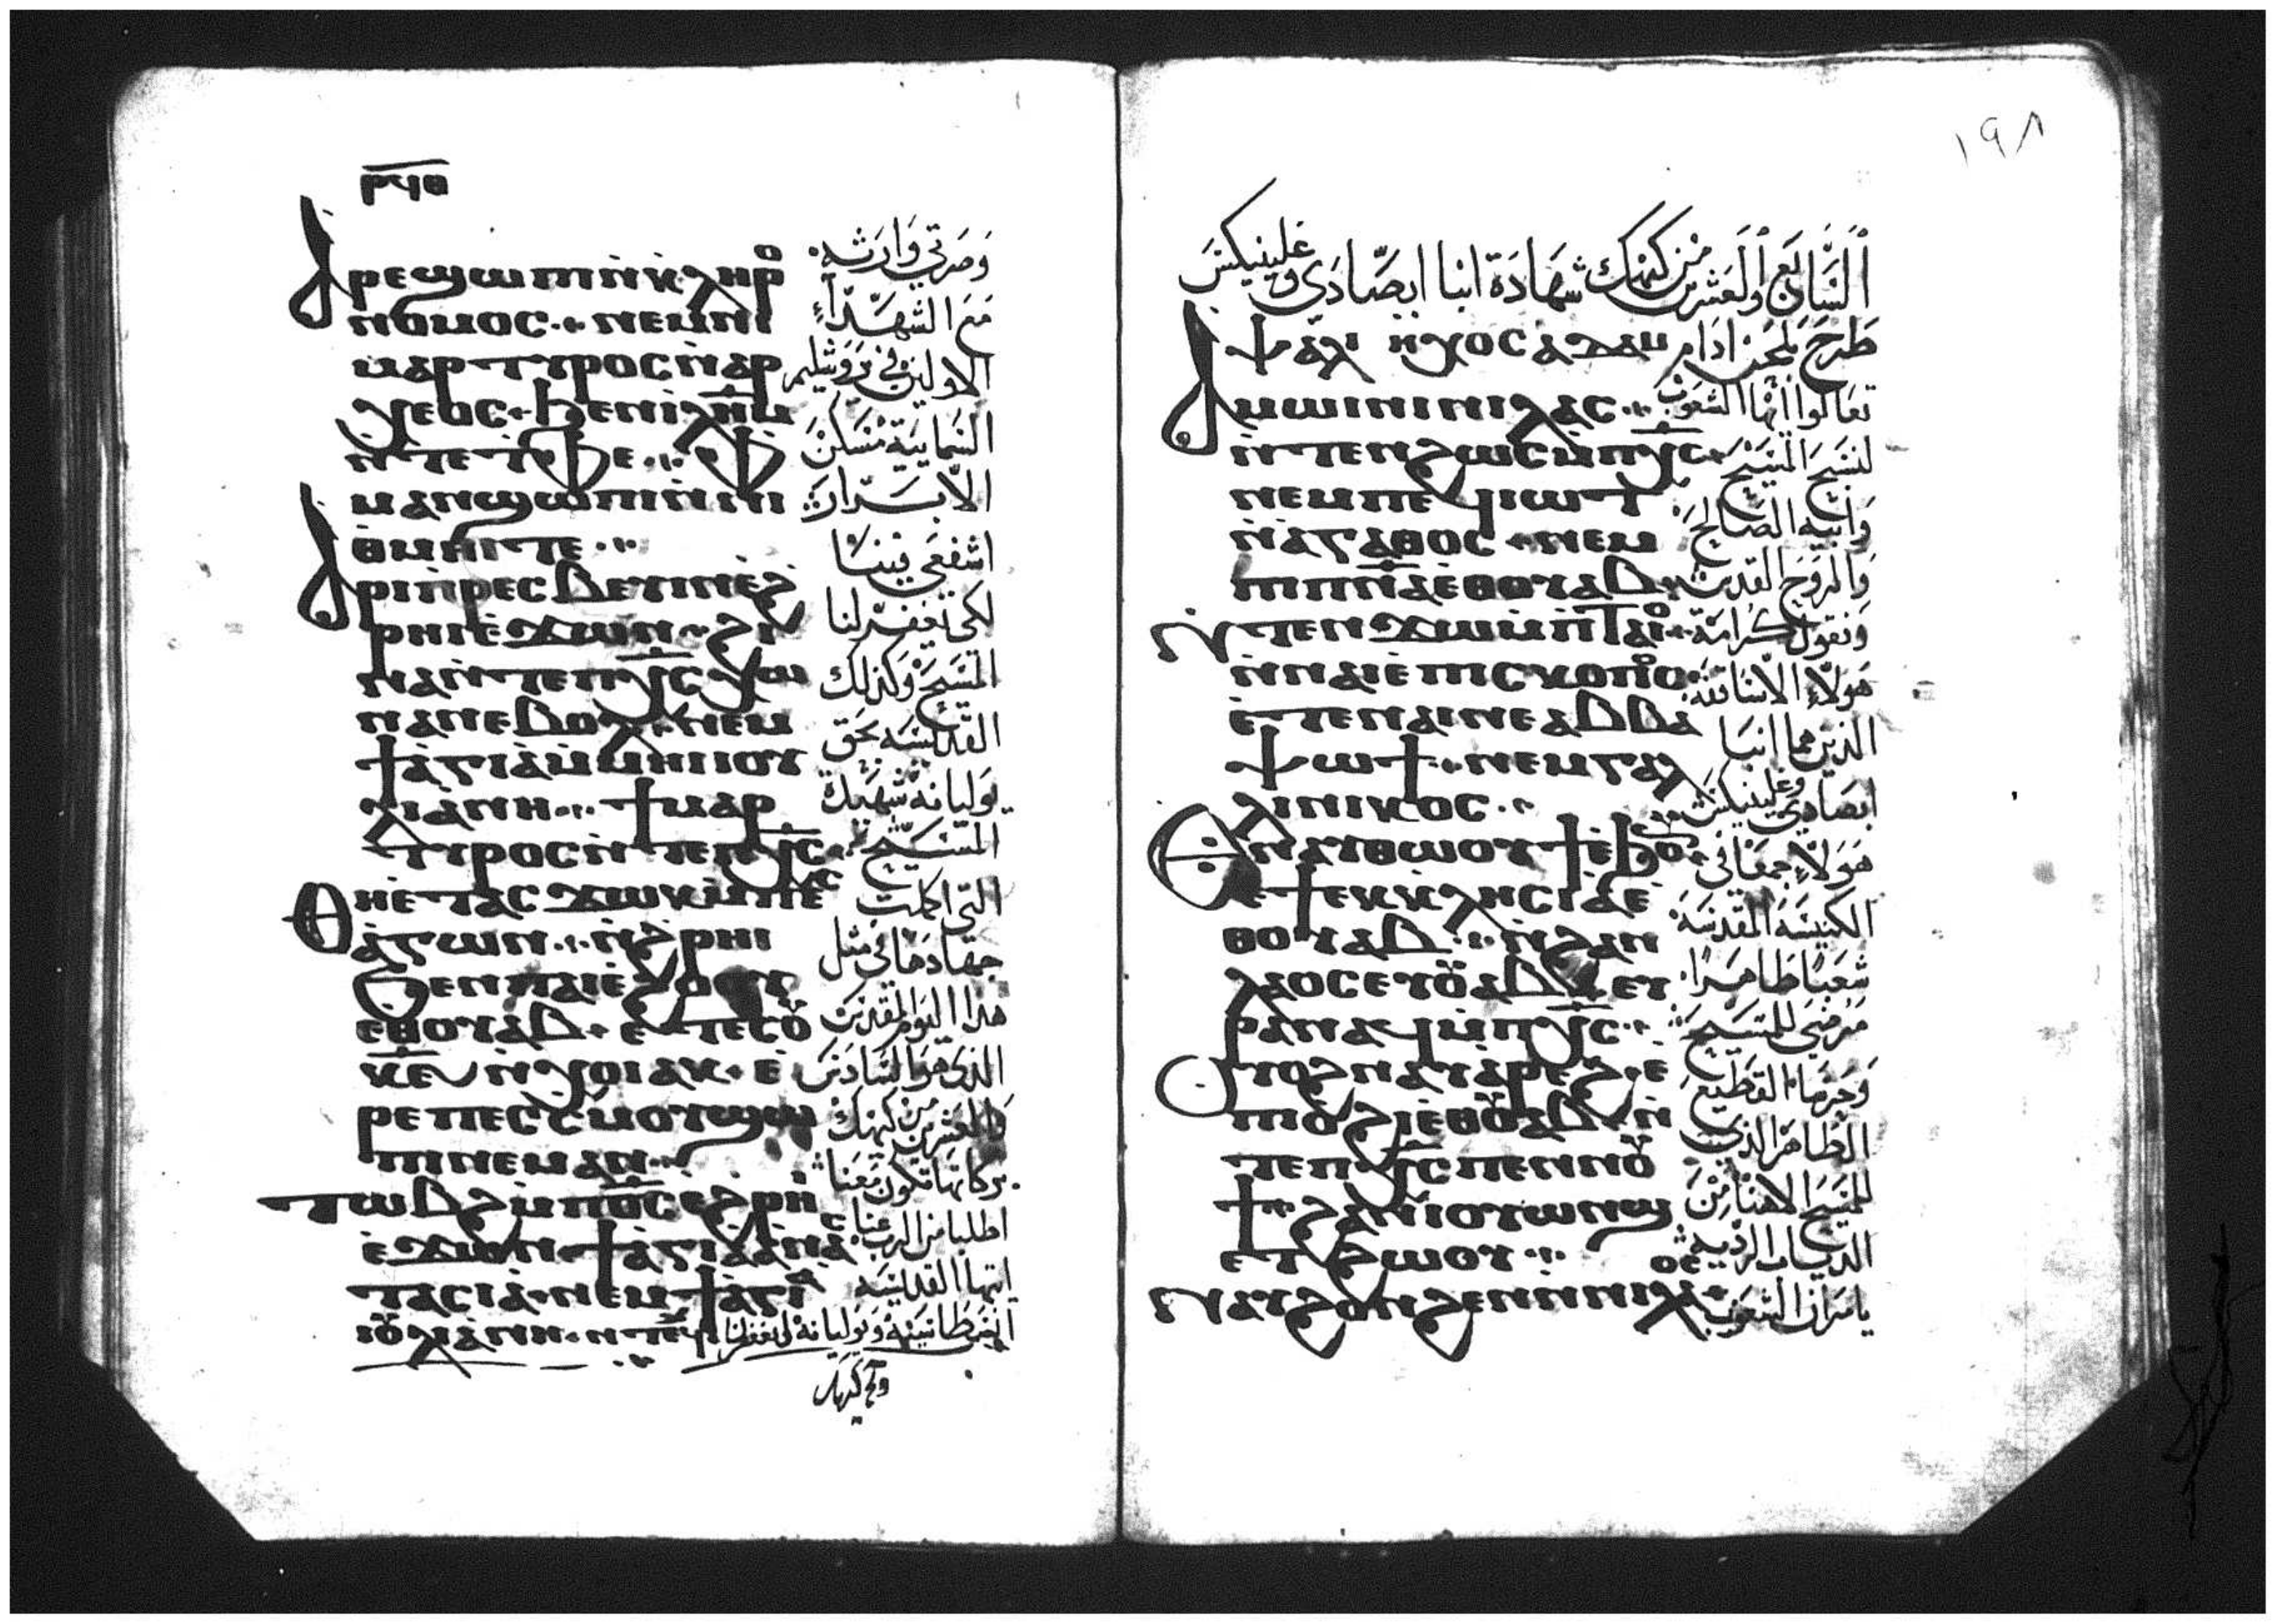 ⲣϥⲑ
ⲁⲣⲉϣⲱⲡⲓ ⲛ̀ⲕⲗⲏⲣⲟ
ⲛⲟⲙⲟⲥ ⲛⲉⲙ ⲛⲓ
ⲙⲁⲣⲧⲩⲣⲟⲥ ⲛ̀ⲁⲣ
ⲭⲉⲟⲥ ϧⲉⲛ ⲓⲗⲏ̅ⲙ
ⲛ̀ⲧⲉ ⲧ̀ⲫⲉ ⲫ
ⲙⲁⲛϣⲱⲡⲓ ⲛ̀ⲛⲓ
ⲑⲙⲏⲓ ⲧⲉ
ⲁⲣⲓⲡ̀ⲣⲉⲥⲃⲉⲩⲓⲛ ⲉ̀ϩ
ⲣⲏⲓ ⲉ̀ϫⲱⲛ ϩⲓ
ⲛⲁ ⲛ̀ⲧⲉ ⲡⲭ̅ⲥ ⲭⲱ
ⲛⲁⲛ ⲉⲃⲟⲗ ⲛⲉⲙ
ϯⲁ̀ⲅⲓⲁ̀ ⲙ̀ⲙⲏⲓ ⲓⲟⲩ
ⲗⲓⲁ̀ⲛⲏ ϯⲙⲁⲣ
ⲧⲩⲣⲟⲥ ⲛ̀ⲧⲉ ⲡⲭ̅ⲥ
ⲑⲏ ⲉ̀ⲧⲁⲥϫⲱⲕ ⲙ̀ⲡⲉⲥ
ⲁ̀ⲅⲱⲛ ⲛ̀ϩⲣⲏⲓ
ϧⲉⲛ ⲡⲁⲓ ⲉ̀ϩⲟⲟⲩ
ⲉⲑⲟⲩⲁⲃ ⲉ̀ⲧⲉ ⲥⲟⲩ
ⲕ̅ⲋ ⲛ̀ⲭⲟⲓⲁⲕ ⲉ̀
ⲣⲉ ⲡⲉⲥⲥ̀ⲙⲟⲩ ϣⲱ
ⲡⲓ ⲛⲉⲙⲁⲛ
ⲧⲱⲃϩ ⲙ̀ⲡⲟ̅ⲥ ⲉϩⲣⲏⲓ
ⲉ̀ϫⲱⲛ ϯⲁ̀ⲅⲓⲁ ⲁ̀ⲛⲁⲥ
ⲧⲁⲥⲓⲁ̀ ⲛⲉⲙ ϯⲁ̀ⲅⲓⲁ
ⲓⲟⲩⲗⲓⲁ̀ⲛⲏ ⲛ̀ⲧⲉϥ
وصرتي وارثه
مع الشهداء
الاولين في يروشليم
السماييه مسكن
الابرار
اشفعي فينا
لكي يغفر لنا
المسيح وكذلك
القديسه بحق
يوليانه شهيدة
المسيح
التي اكملت
جهادها في مثل
هذا اليوم المقدس
الذي هو السادس
والعشرين من كيهك
بركاتها تكون معنا
اطلبا من الرب عنا
ايتها القديسه
انسطاسيه ويوليانه ليغفر لنا
١٩٨
السابع والعشرين من كيهك شهادة انبا ابصادى وغلينيكس
ⲯⲁⲗⲓ ⲏⲭⲟⲥ ⲁⲇⲁⲙ طرح بلحن ادام
ⲁⲙⲱⲓⲛⲓ ⲛⲓⲗⲁⲟⲥ
ⲛ̀ⲧⲉⲛϩⲱⲥ ⲙ̀ⲡⲭ̅ⲥ
ⲛⲉⲙ ⲡⲉϥⲓⲱⲧ
ⲛ̀ⲁ̀ⲅⲁⲑⲟⲥ ⲛⲉⲙ
ⲡⲓⲡ̅ⲛ̅ⲁ̅ ⲉⲑⲟⲩⲁⲃ
ⲛ̀ⲧⲉⲛϫⲱ ⲙ̀ⲡ̀ⲧⲁⲓⲟ
ⲛ̀ⲛⲁⲓ ⲉⲡⲓⲥⲕⲟⲡⲟⲥ
ⲉ̀ⲧⲉ ⲛⲁⲓ ⲛⲉ ⲁⲃⲃⲁ
ⲯⲱϯ ⲛⲉⲙ ⲅⲁⲗ
ⲗⲓⲛⲓⲕⲟⲥ
ⲉⲛⲁⲩⲑⲱⲟⲩϯ ⲉ̀ϧⲟⲩⲛ
ⲉ̀ϯⲉⲕⲕⲗⲏⲥⲓⲁ ⲉ̀
ⲑⲟⲩⲁⲃ ⲛ̀ϩⲁⲛ
ⲗⲁⲟⲥ ⲉⲩⲟⲩⲁⲃ ⲉⲩ
ⲣⲁⲛⲁϥ ⲙ̀ⲡⲭ̅ⲥ
ⲟⲩⲟϩ ⲛⲁⲩⲁ̀ⲣⲉϩ ⲉ̀
ⲡⲓⲟ̀ϩⲓ ⲉⲑⲟⲩⲁⲃ ⲛ̀
ⲧⲉ ⲡⲭ̅ⲥ ⲡⲉⲛⲛⲟⲩ
ϯ ϩⲁⲛⲓⲟⲩⲱⲛϣ
ⲉⲧϩⲱⲟⲩ
ⲛⲁⲩϩⲟⲛϩⲉⲛ ⲛ̀ⲛⲓⲗⲁⲟⲥ
تعالوا ايها الشعوب
لنسبح المسيح
وابيه الصالح
والروح القدس
ونقول كرامة
هولاء الاساقفه
الذين هما انبا
ابصادي وغلينيكس
هولاء جمعا في
الكنيسه المقدسه
شعبا طاهرا
مرضى للمسيح
وحرسا القطيع
الطاهر الذي
للمسيح الاهنا من
الدياب الرديه